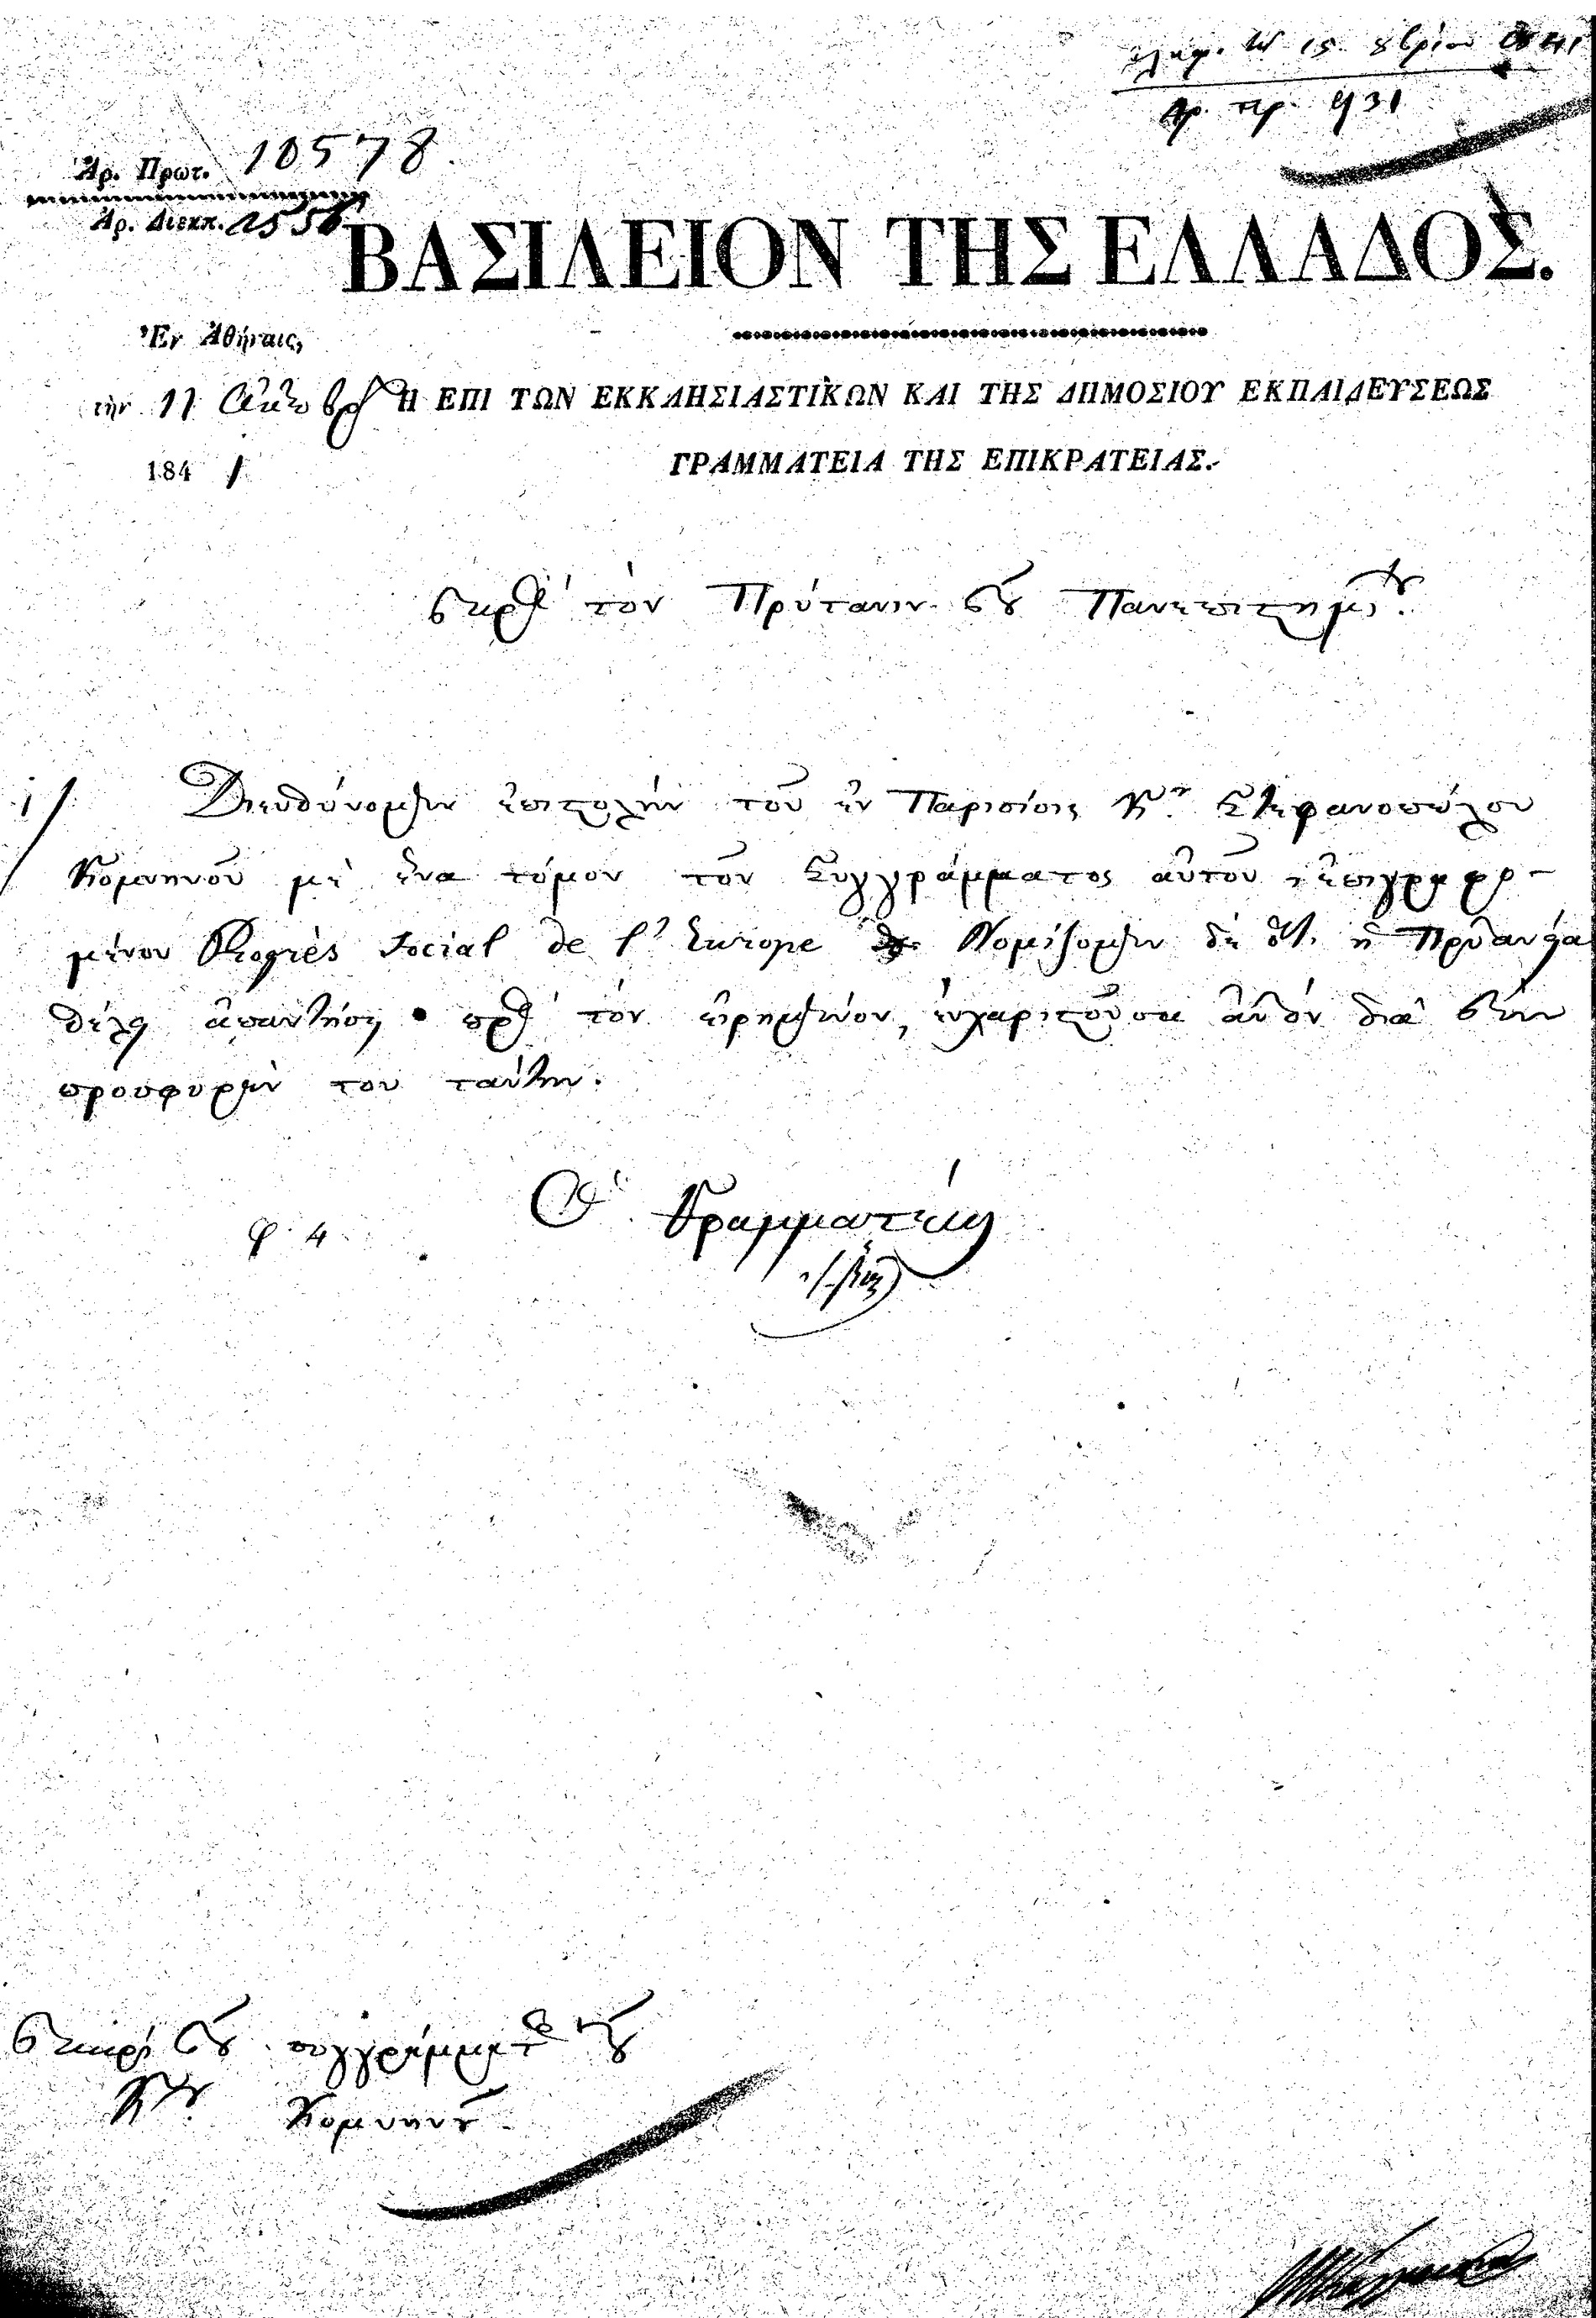 ἐλήφ. τῇ 15 8βρίου 1841
Ἀρ. πρ. 931
Ἀρ. Πρωτ. 10578
Ἀρ. Διεκπ.
ΒΑΣΙΛΕΙΟΝ ΤΗΣ ΕΛΛΑΔΟΣ.
Ἐν Ἀθήναις,
τὴν 11 Ὀκτωβρ
Η ΕΠΙ ΤΩΝ ΕΚΚΛΗΣΙΑΣΤΙΚΩΝ ΚΑΙ ΤΗΣ ΔΗΜΟΣΙΟΥ ΕΚΠΑΙΔΕΥΣΕΩΣ
1841
ΓΡΑΜΜΑΤΕΙΑ ΤΗΣ ΕΠΙΚΡΑΤΕΙΑΣ.
πρὸς τὸν Πρύτανιν τοῦ Πανεπιστημίου.
1/ Διευθύνομεν ἐπιστολὴν τοῦ ἐν Παρισίοις Κου Στεφανοπούλου
Κομνηνοῦ μὲ ἕνα τόμον τοῦ συγγράμματος αὐτοῦ ἐπιγραφο-
μένου Progrès Social de l'Europe Νομίζομεν δὲ ὅτι ἡ Πρυτανεία
θέλει ἀπαντήσει πρὸς τὸν εἰρημένον, εὐχαριστοῦσα αὐτὸν διὰ τὴν
προσφορὰν του ταύτην.
Ὁ Γραμματεὺς
φ. 4
περὶ τοῦ συγγράμματος τοῦ
Κου Κομνηνοῦ